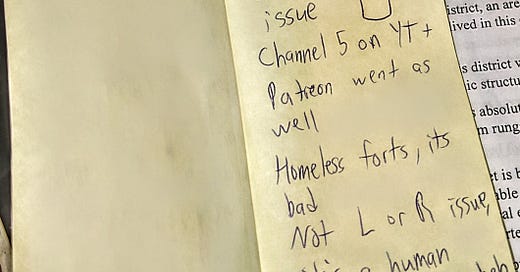 issue
Channel 5 on YT +
Patreon went as
well
Homeless forts, its
bad
Not L or R issue,
a human
istrict, an are
lived in this
s district
ic structu
absolut
m rung
t is b
able
al